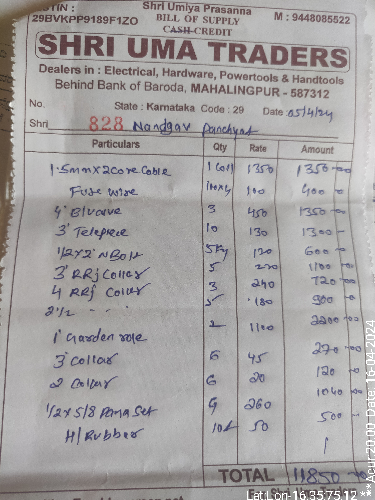 Shri Umiya Prasanna
29BVKPP9189F1ZO BILL OF SUPPLY M : 9448085522
CASH-CREDIT
SHRI UMA TRADERS
Dealers in : Electrical, Hardware, Powertools & Handtools
Behind Bank of Baroda, MAHALINGPUR - 587312
No. State : Karnataka Code : 29 Date 05/4/24
Shri 828 Nandgav Panchyat
Particulars Qty Rate Amount
1.5mmx2core Cable 1 Coil 1350 1350-00
Fuse wire 100 400-00
4" B/valve 3 450 1350-00
3" Telepiece 10 130 1300-
1/2x2" N Bolt 5kg 120 600-00
3" RRJ Collar 5 220 1100-00
4 RRJ Collar 3 240 720-00
2 1/2 5 180 900-00
1" Garden 2 1100 2200-00
3" Collar 6 45 270-00
2 Collar 6 20 120-00
1/2x5/8 Set 4 260 1040-00
H/Rubber 10 50 500-00
TOTAL 11850-00
Lat Lon-16.357512
***Acur 20.00 Date 16-04-2024